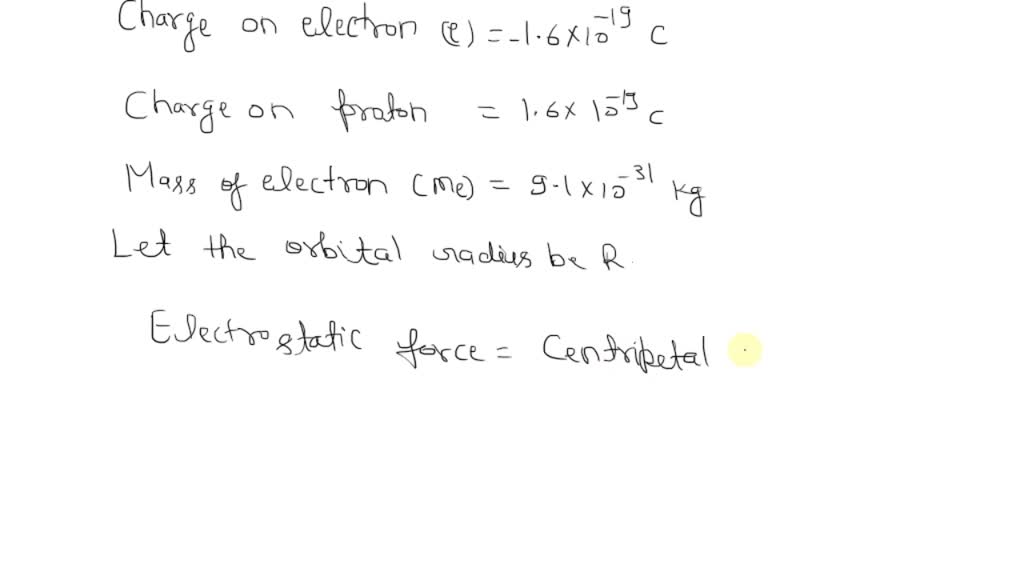 Charge on electron (e) = -1.6×10⁻¹⁹ C
Charge on proton = 1.6×10⁻¹⁹ C
Mass of electron (me) = 9.1×10⁻³¹ kg
Let the orbital radius be R.
Electrostatic force = Centripetal